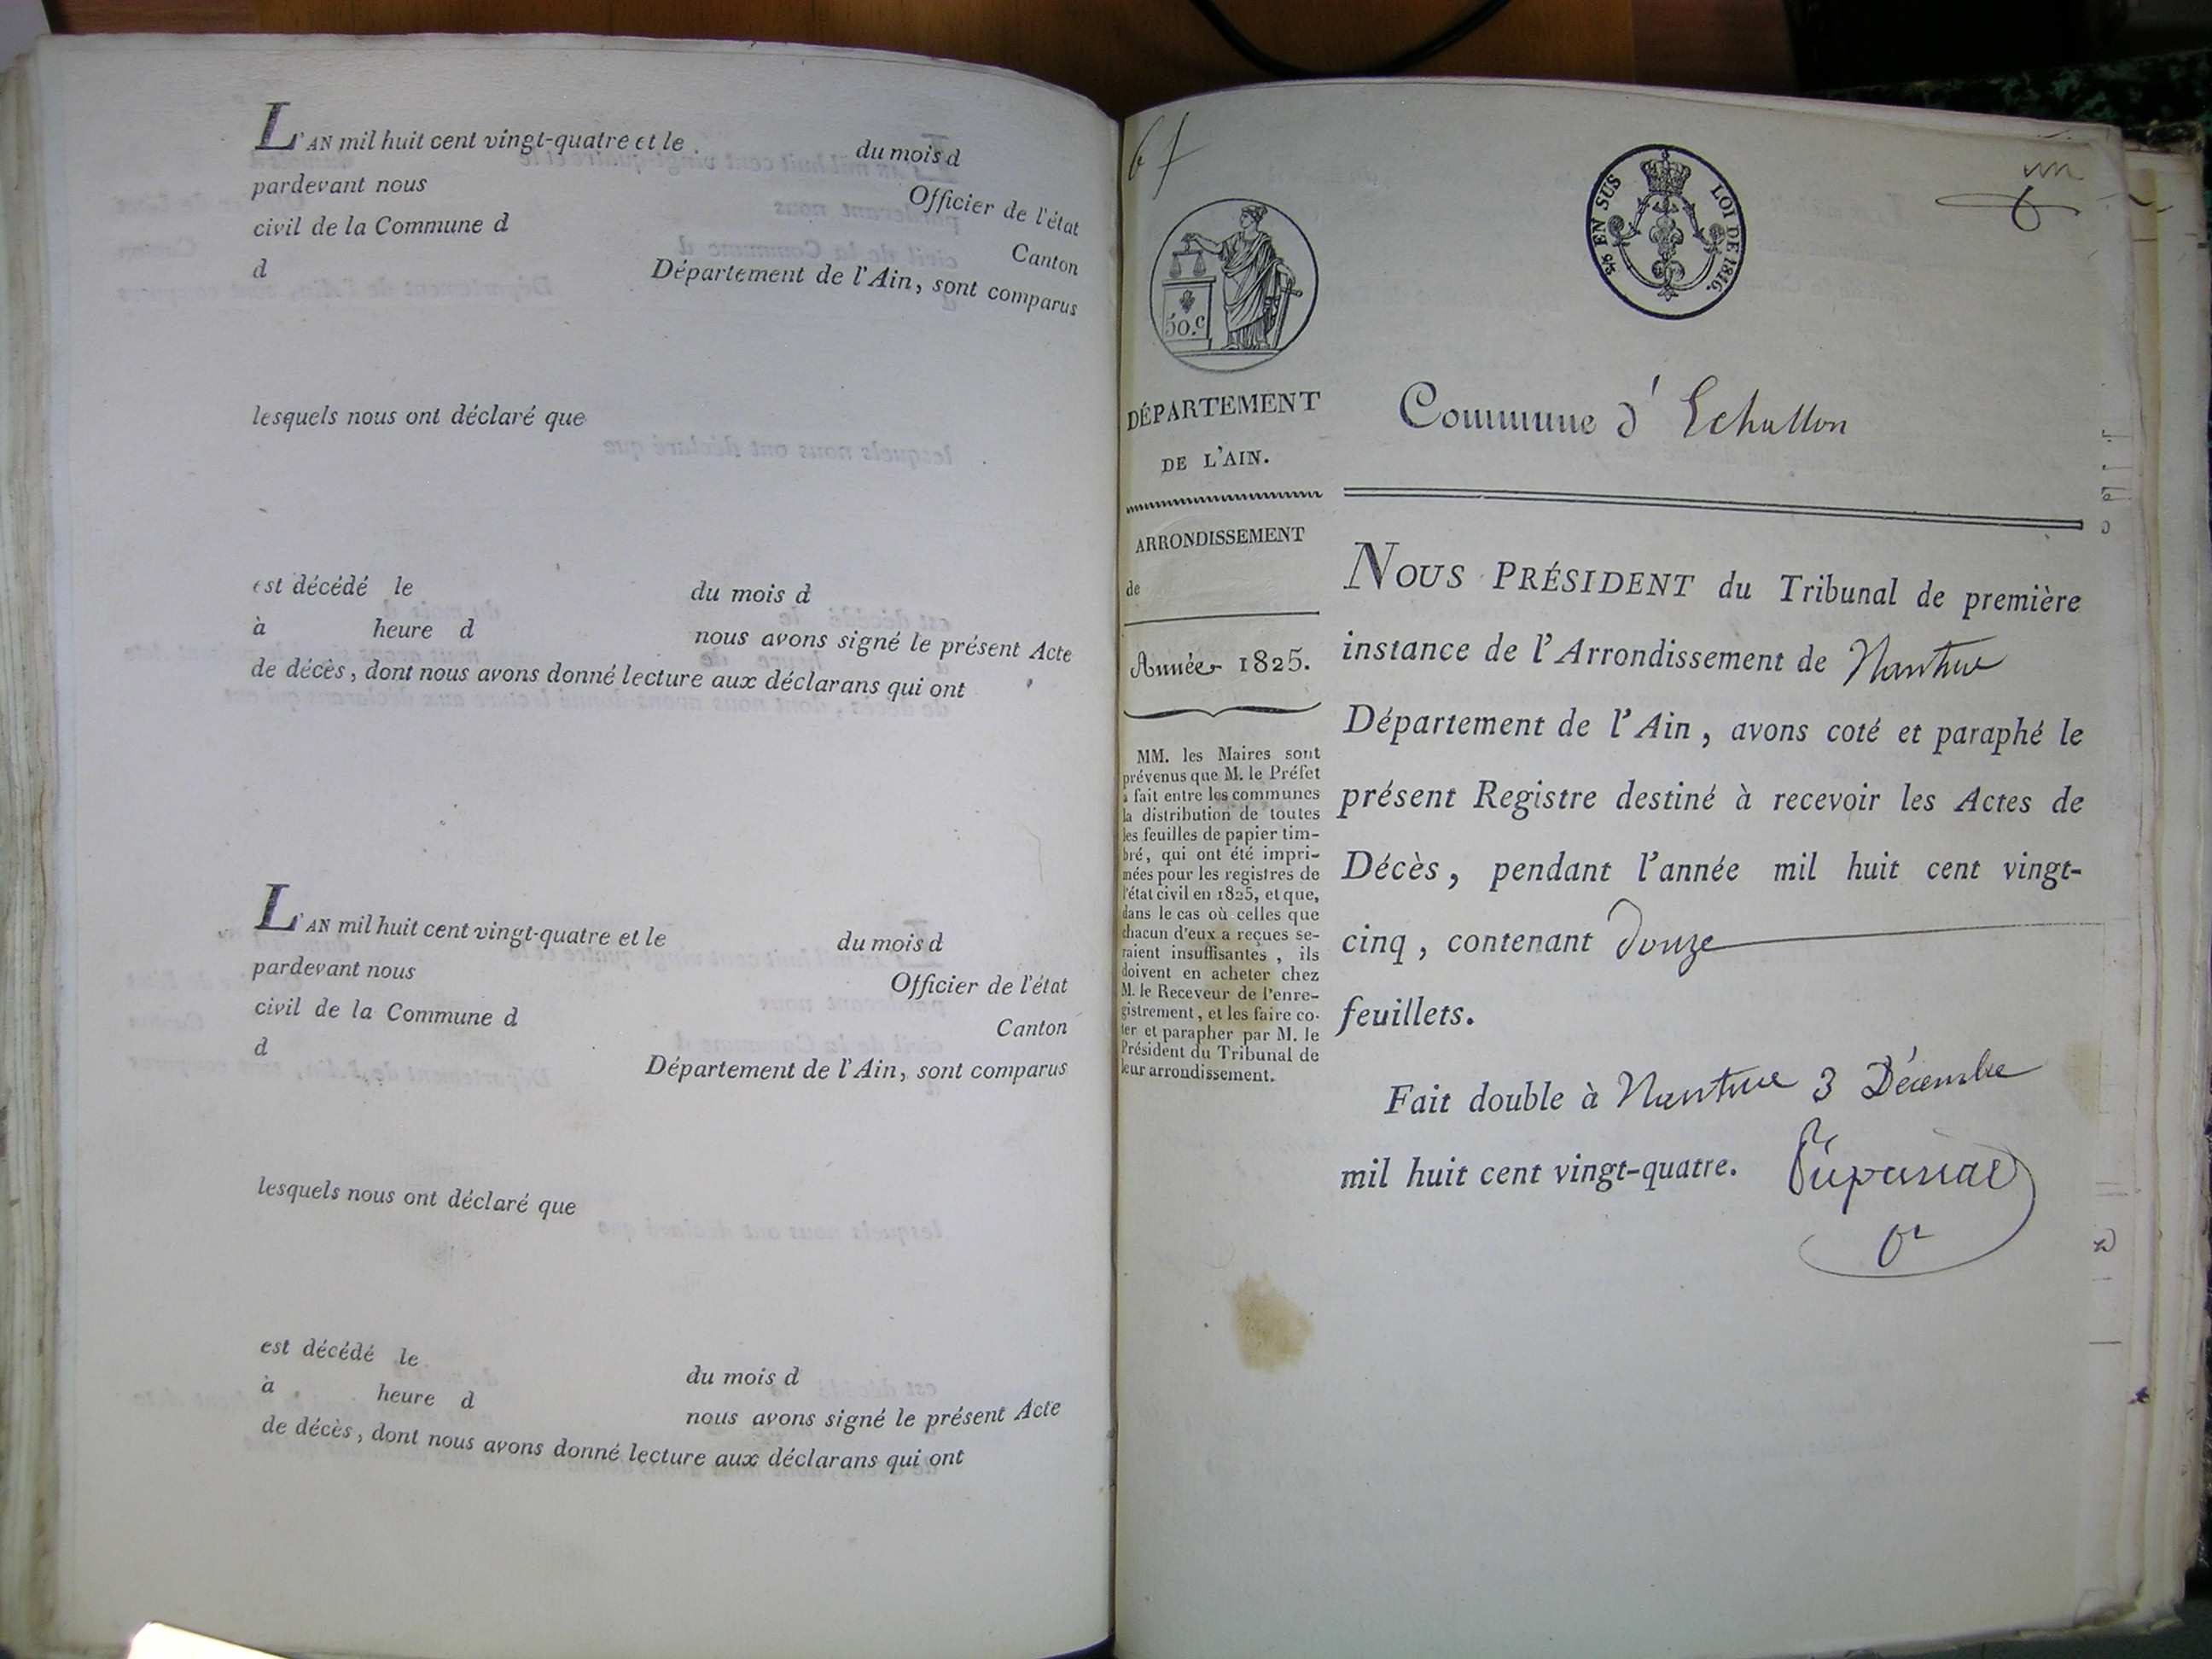 L'AN mil huit cent vingt-quatre et le du mois d
pardevant nous Officier de l'état
civil de la Commune d Canton
d Département de l'Ain, sont comparus
lesquels nous ont déclaré que
est décédé le du mois d
à heure d nous avons signé le présent Acte
de décès, dont nous avons donné lecture aux déclarans qui ont
L'AN mil huit cent vingt-quatre et le du mois d
pardevant nous Officier de l'état
civil de la Commune d Canton
d Département de l'Ain, sont comparus
lesquels nous ont déclaré que
est décédé le du mois d
à heure d nous avons signé le présent Acte
de décès, dont nous avons donné lecture aux déclarans qui ont
un
50.c
EN SUS LOI DE 1816.
DÉPARTEMENT
DE L'AIN.
ARRONDISSEMENT
de
Année 1825.
MM. les Maires sont
prévenus que M. le Préfet
a fait entre les communes
la distribution de toutes
les feuilles de papier tim-
bré, qui ont été impri-
mées pour les registres de
l'état civil en 1825, et que,
dans le cas où celles que
chacun d'eux a reçues se-
raient insuffisantes, ils
doivent en acheter chez
M. le Receveur de l'enre-
gistrement, et les faire co-
ter et parapher par M. le
Président du Tribunal de
leur arrondissement.
Commune d'Echallon
NOUS PRÉSIDENT du Tribunal de première
instance de l'Arrondissement de Nantua
Département de l'Ain, avons coté et paraphé le
présent Registre destiné à recevoir les Actes de
Décès, pendant l'année mil huit cent vingt-
cinq, contenant douze
feuillets.
Fait double à Nantua 3 Décembre
mil huit cent vingt-quatre.